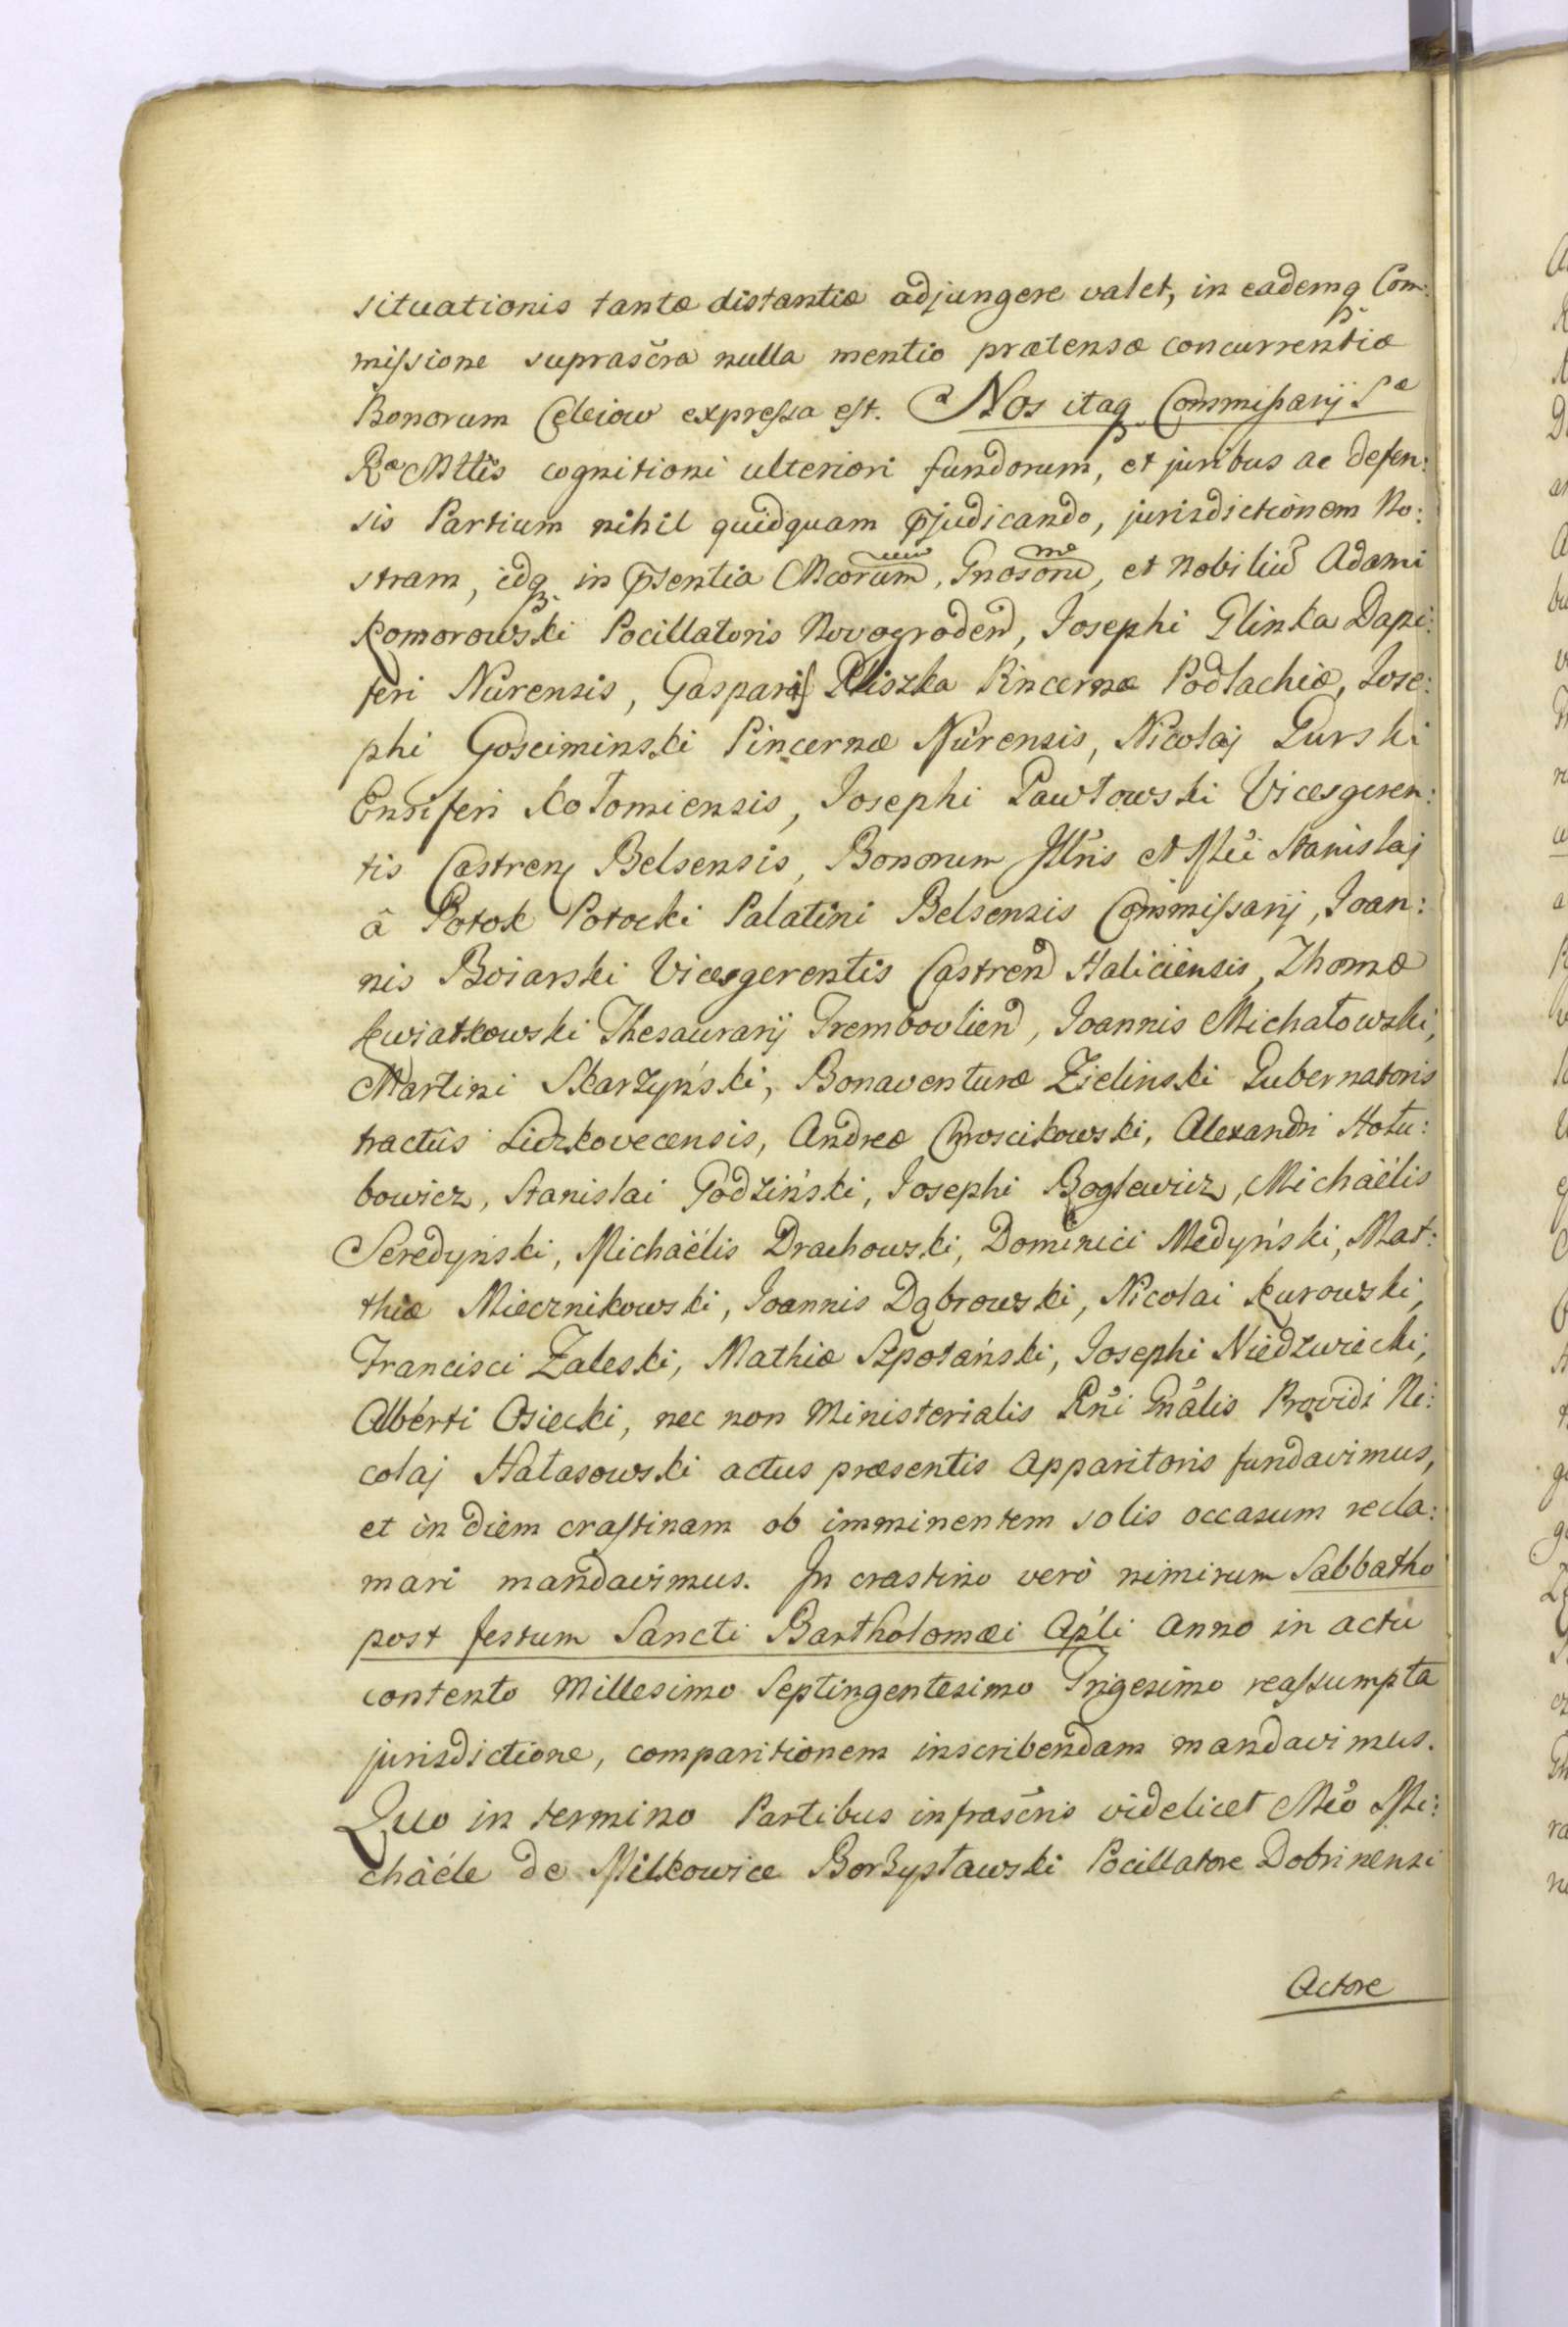 situationis tantæ distantiæ adjungere valet, in eademq́ Com:
mißione suprascr̃a nulla mentio prætensæ concurrentiæ
Bonorum Celeiow expressa est. Nos itaq́ Commissarij Sᵃᵉ
Rᵃᵉ Mttis cognitioni ulteriori fundorum, et juribus ac defen:
sis Partium nihil quidquam p̃judicando, jurisdictionem No:
stram, idq́ in p̃sentia Mcorum, Gnosorũ, et Nobiliũ Adami
Komorowski Pocillatoris Novogroden̄, Josephi Glinka Dapi:
feri Nurensis, Gasparis Pliszka Pincernæ Podlachiæ, Jose:
phi Gosciminski Pincernæ Nurensis, Nicolaj Gurski
Ensiferi Kołomiensis, Josephi Pawłowski Vicesgeren:
tis Castren̄ Belsensis, Bonorum Jllr̃is et Mci Stanislaj
â Potok Potocki Palatini Belsensis Commissarij, Joan:
nis Boiarski Vicesgerentis Castren̄ Haliciensis, Thomæ
Kwiatkowski Thesaurarij Trembovlien̄, Joannis Michałowski,
Martini Skarżyński, Bonaventuræ Zielinski Gubernatoris
tractûs Lidzkovecensis, Andreæ Chroscikowski, Alexandri Hołu:
bowicz, Stanislai Godziński, Josephi Boglewicz, Michäelis
Seredyński, Michäelis Drachowski, Dominici Medyński, Mat:
thiæ Miecznikowski, Joannis Dąbrowski, Nicolai Kurowski,
Francisci Zaleski, Mathiæ Szpotański, Josephi Niedzwiecki,
Alberti Osiecki, nec non Ministerialis Rñi Gñalis Providi Ni:
colaj Hałasowski actus præsentis Apparitoris fundavimus,
et in diem crastinam ob imminentem solis occasum recla:
mari mandavimus. Jn crastino verò nimirum Sabbatho
post festum Sancti Bartholomæi Apłi Anno in actu
contento Millesimo Septingentesimo Trigesimo reassumpta
jurisdictione, comparitionem inscribendam mandavimus.
Quo in termino Partibus infrascr̃is videlicet Mco Mi:
chäele de Milkowice Borzysławski Pocillatore Dobrinensi
Actore